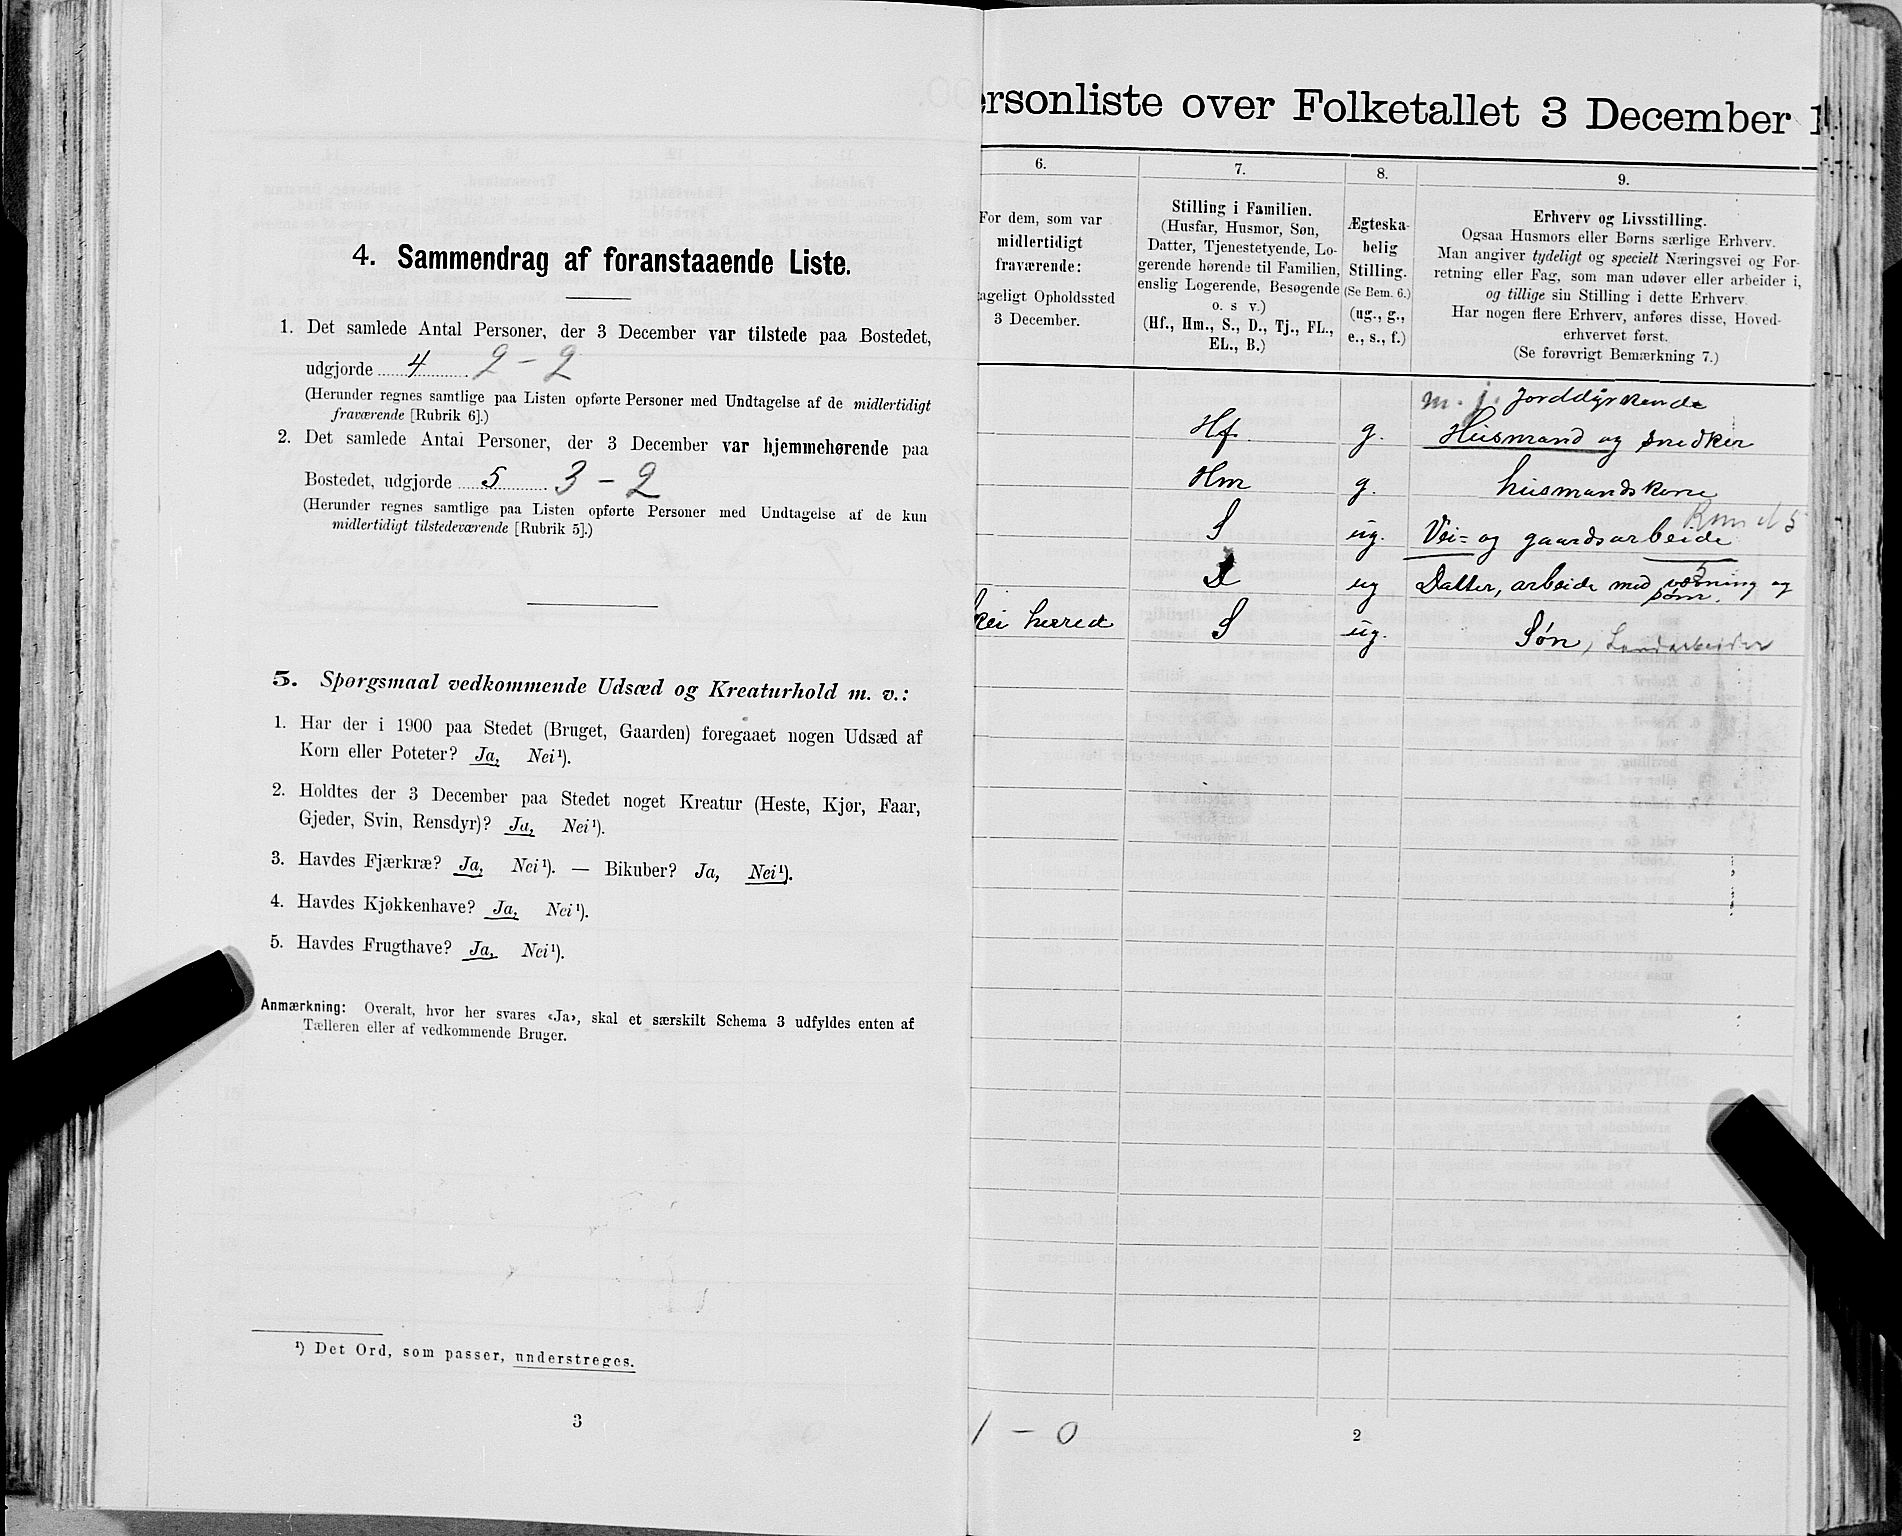 4. Sammendrag af foranstaaende Liste.
1. Det samlede Antal Personer, der 3 December var tilstede paa Bostedet,
udgjorde 4 2 - 2
(Herunder regnes samtlige paa Listen opførte Personer med Undtagelse af de midlertidigt
fraværende [Rubrik 6].)
2. Det samlede Antal Personer, der 3 December var hjemmehørende paa
Bostedet, udgjorde 5 3 - 2
(Herunder regnes samtlige paa Listen opførte Personer med Undtagelse af de kun
midlertidigt tilstedeværende [Rubrik 5].)
5. Spørgsmaal vedkommende Udsæd og Kreaturhold m. v.:
1. Har der i 1900 paa Stedet (Bruget, Gaarden) foregaaet nogen Udsæd af
Korn eller Poteter? Ja, Nei¹).
2. Holdtes der 3 December paa Stedet noget Kreatur (Heste, Kjør, Faar,
Gjeder, Svin, Rensdyr)? Ja, Nei¹).
3. Havdes Fjærkræ? Ja, Nei¹). — Bikuber? Ja, Nei¹).
4. Havdes Kjøkkenhave? Ja, Nei¹).
5. Havdes Frugthave? Ja, Nei¹).
Anmærkning: Overalt, hvor her svares «Ja», skal et særskilt Schema 3 udfyldes enten af
Tælleren eller af vedkommende Bruger.
¹) Det Ord, som passer, understreges.
3
ersonliste over Folketallet 3 December 1
6.
7.
8.
9.
For dem, som var
midlertidigt
fraværende:
ageligt Opholdssted
3 December.
Stilling i Familien.
(Husfar, Husmor, Søn,
Datter, Tjenestetyende, Lo-
gerende hørende til Familien,
enslig Logerende, Besøgende
o. s v.)
(Hf., Hm., S., D., Tj., FL.,
EL., B.)
Ægteska-
belig
Stilling.
(Se Bem. 6.)
(ug., g.,
e., s., f.)
Erhverv og Livsstilling.
Ogsaa Husmors eller Børns særlige Erhverv.
Man angiver tydeligt og specielt Næringsvei og For-
retning eller Fag, som man udøver eller arbeider i,
og tillige sin Stilling i dette Erhverv.
Har nogen flere Erhverv, anføres disse, Hoved-
erhvervet først.
(Se forøvrigt Bemærkning 7.)
m. j. Jorddyrkende
Hf. g. Husmand og snedker
Hm g. husmandskone
S ug. Vei= og gaardsarbeide
D ug Datter, arbeide med vævning og
søm.
kei herred S ug. Søn, Landarbeider
1 - 0
2